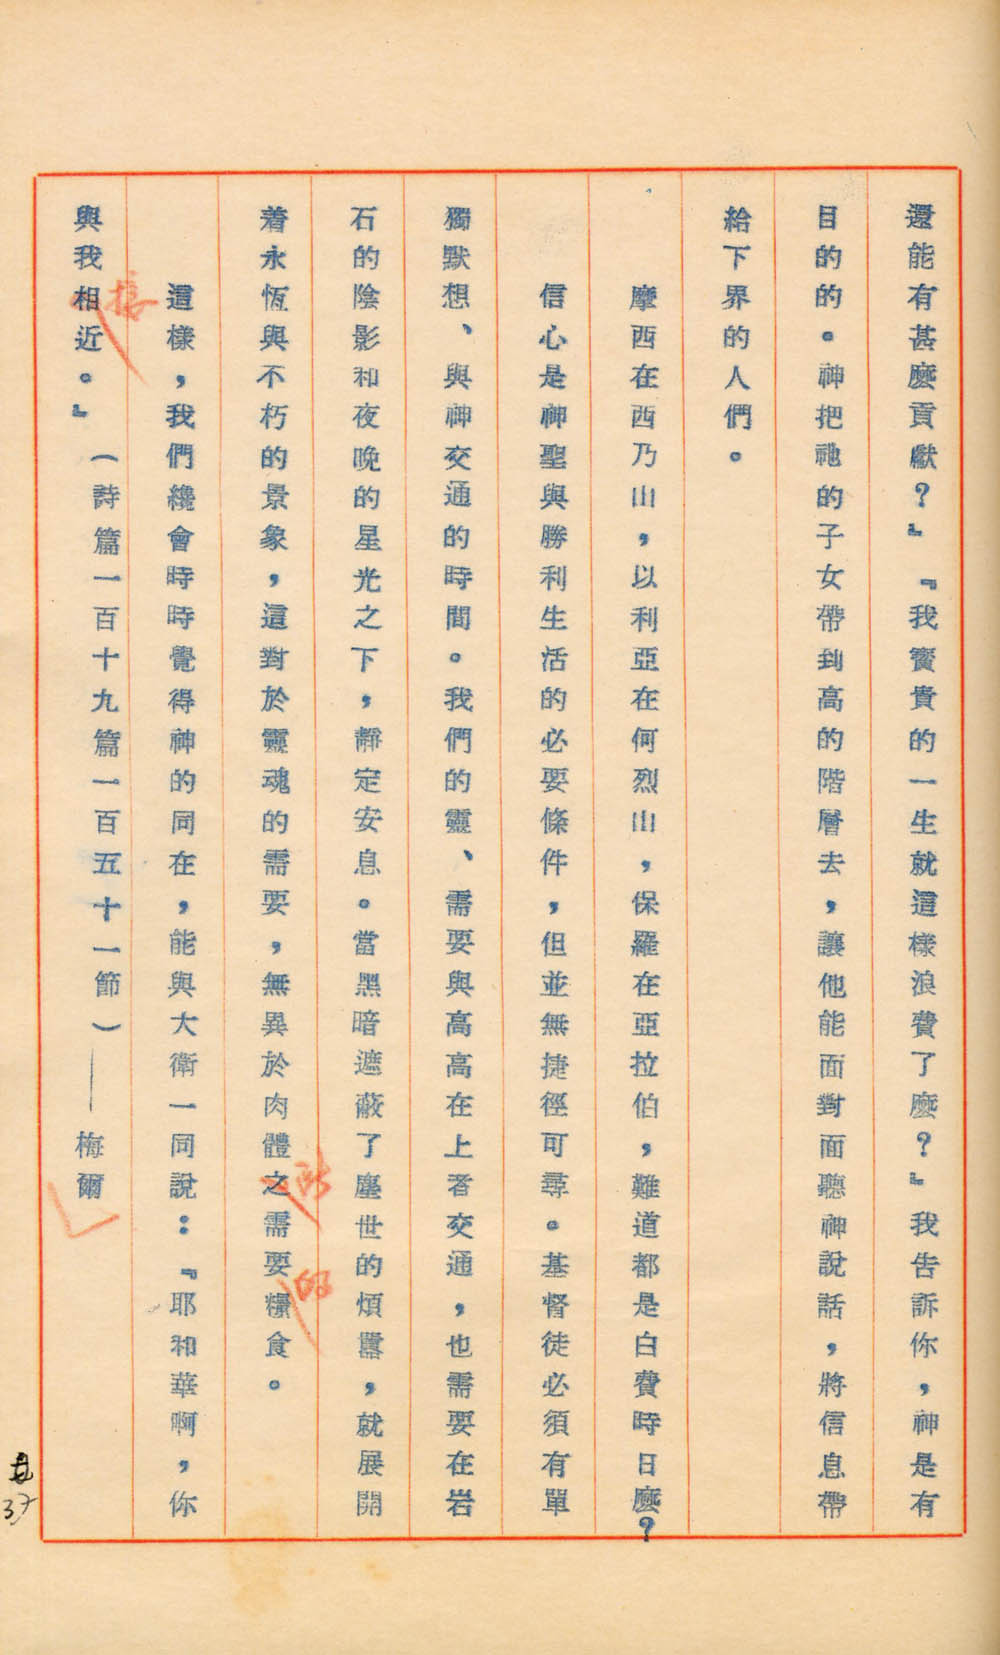 還能有甚麼貢獻？』『我寳貴的一生就這樣浪費了麼？』我告訴你，神是有
目的的。神把祂的子女帶到高的階層去，讓他能面對面聽神說話，將信息帶
給下界的人們。
摩西在西乃山，以利亞在何烈山，保羅在亞拉伯，難道都是白費時日麼？
信心是神聖與勝利生活的必要條件，但並無捷徑可尋。基督徒必須有單
獨默想、與神交通的時間。我們的靈、需要與高高在上者交通，也需要在岩
石的陰影和夜晚的星光之下，靜定安息。當黑暗遮蔽了塵世的煩囂，就展開
着永恆與不朽的景象，這對於靈魂的需要，無異於肉體之需要糧食。
所
的
這樣，我們纔會時時覺得神的同在，能與大衛一同說：『耶和華啊，你
與我相近。』（詩篇一百十九篇一百五十一節）——梅爾
接
37